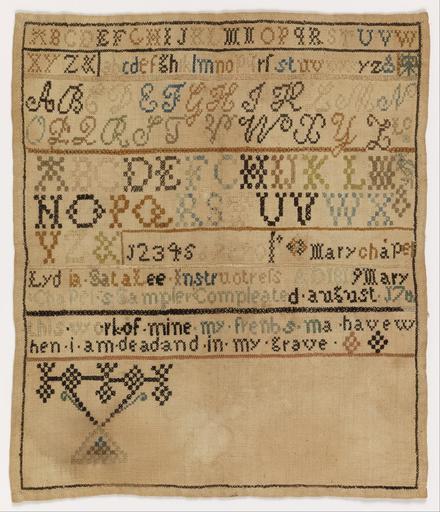 ABCDEFGHIJKLMNOPQRSTUVW
XYZ& abcdefgh lmnopqrſstuvwxyz&
ABCDEFGHIKLMN
OPQRSTVWXYZ
ABCDEFGHIKLM
NOPQRSUVWX
YZ& 12345 Marychapel
Lydia SataLee Instructress 9 Mary
Chapel's Sampler Compleated august
this work of mine my frenbs ma havew
hen i am deadand in my grave